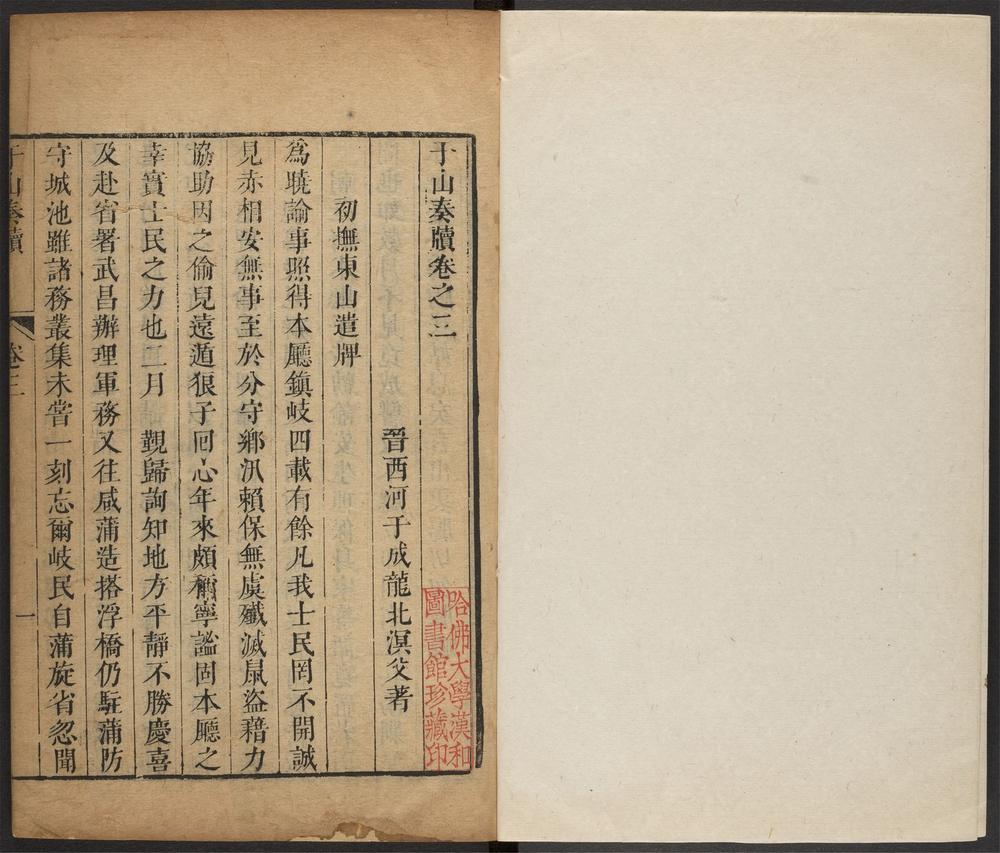 于山奏牘卷之三
晉西河于成龍北溟父著
初撫東山遣牌
為曉諭事照得本廳鎮岐四載有餘凡我士民罔不開誠
見赤相安無事至於分守鄉汛賴保無虞殲滅鼠盜藉力
協助因之偷兒遠遁狠子回心年來頗稱寧謐固本廳之
幸實士民之力也二月覲歸詢知地方平靜不勝慶喜
及赴省署武昌辦理軍務又往咸蒲造搭浮橋仍駐蒲防
守城池雖諸務叢集未嘗一刻忘爾岐民自蒲旋省忽聞
于山奏牘
卷三
一
哈佛大學漢和
圖書館珍藏印